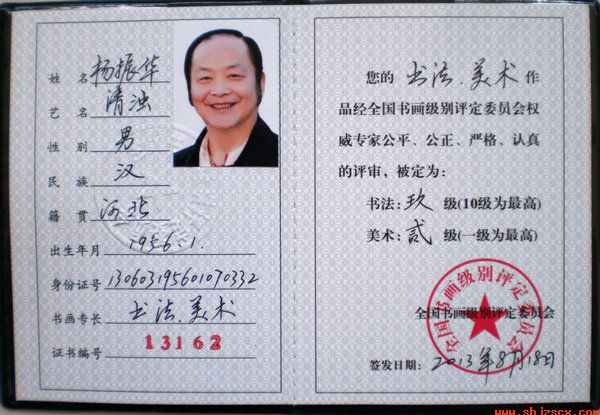 姓 名 杨振华
艺 名 清浊
性 别 男
民 族 汉
籍 贯 河北
出生年月 1956.1.
身份证号 130603195601070332
书画专长 书法.美术
证书编号 13162
您的 书法.美术 作
品经全国书画级别评定委员会权
威专家公平、公正、严格、认真
的评审，被定为：
书法: 玖 级(10级为最高)
美术: 贰 级(一级为最高)
全国书画级别评定委员会
全国书画级别评定委员会
签发日期: 2013年8月18日
www.shjzscx.com